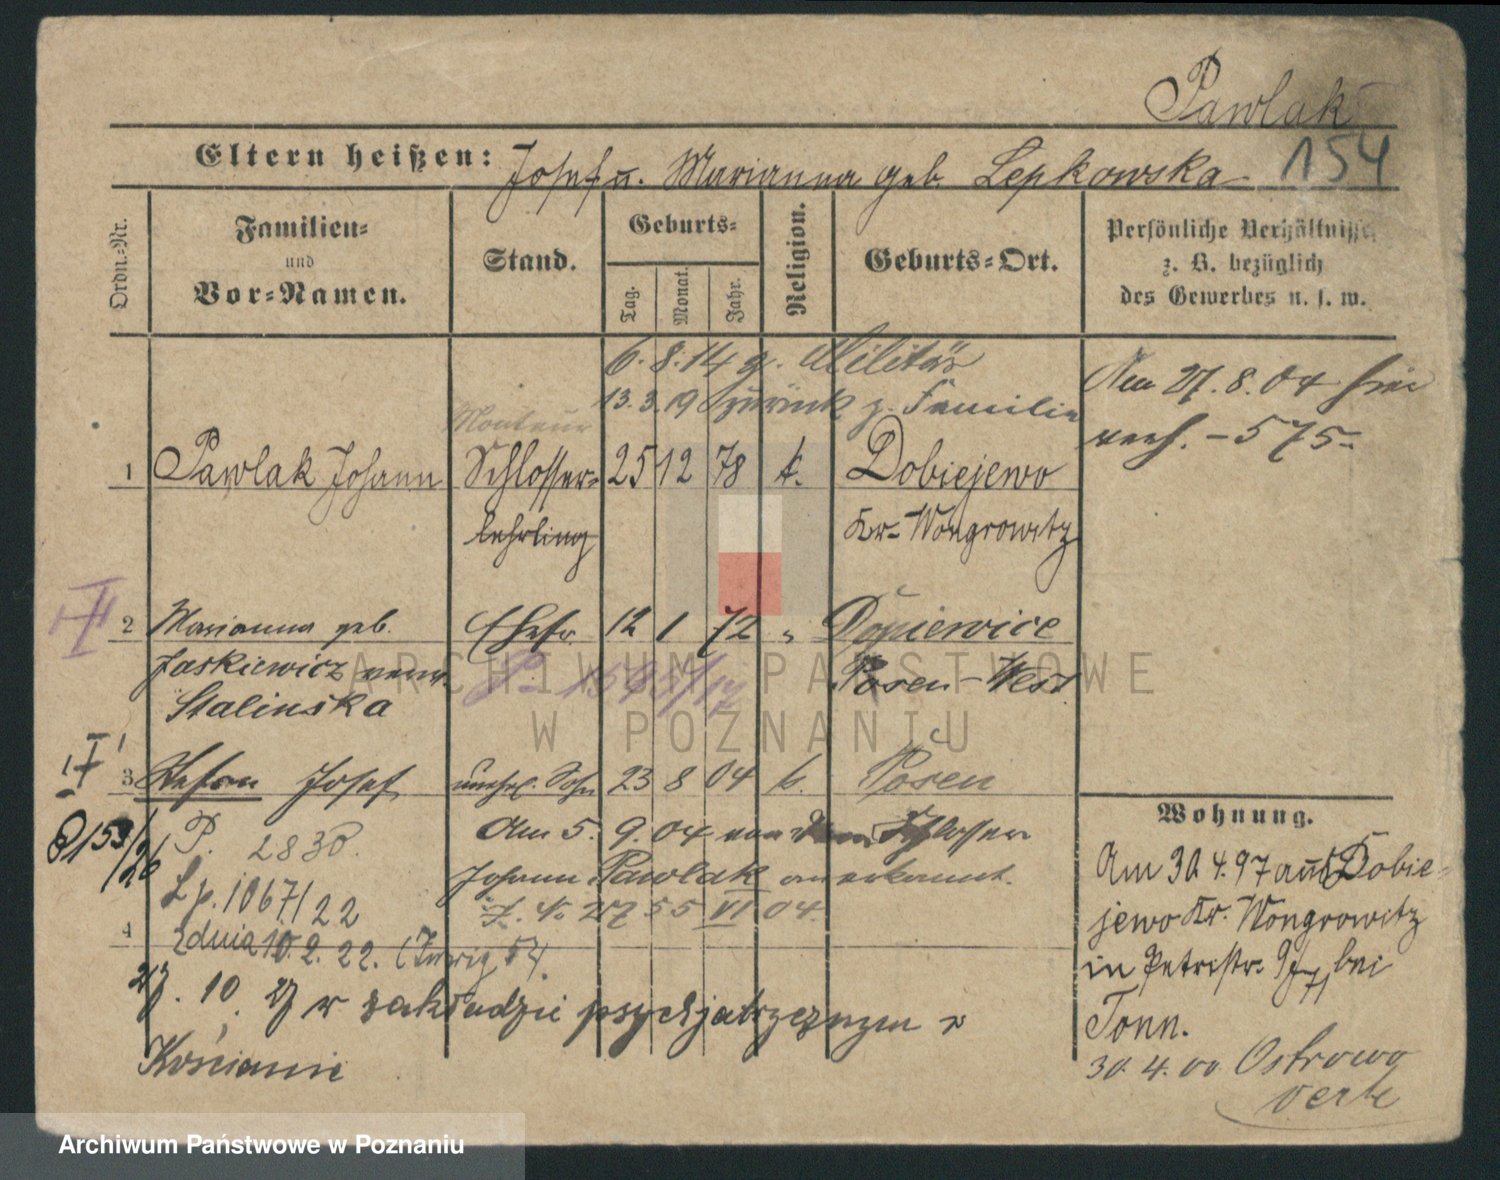 Pawlak
154
Eltern heißen: Josef u. Marianna geb. Lepkowska
Ordn.-Nr.
Familien-
und
Vor-Namen.
Stand.
Geburts-
Tag.
Monat.
Jahr.
Religion.
Geburts-Ort.
Persönliche Verhältnisse,
z. B. bezüglich
des Gewerbes u. s. w.
6. 8. 14 z. Militär
13. 3. 19 zurück z. Familie
Am 27. 8. 04 hier
verh. - 575-
Monteur
1 Pawlak Johann Schlosser- 25 12 78 k. Dobiejewo
lehrling Kr. Wongrowitz
II
2 Marianna geb. Ehefr. 12 1 72 „ Dopiewice
Jaskiewicz verw. Posen-West
Stalinska
3 Stefan Josef unehel. Sohn 23 8 04 k. Posen
Am 5. 9. 04 von dem Schlosser
Johann Pawlak anerkannt.
55 VI 04.
P. 2830.
153/26
Lp. 1067/22
4 z dnia 10. 2. 22.
27. 10. 27 w zakładzie psychjatrzycznym w
Kościanie
Wohnung.
Am 30. 4. 97 aus Dobie-
jewo Kr. Wongrowitz
in Petristr. bei
Tonn.
30. 4. 00 Ostrowo
verte
ARCHIWUM PAŃSTWOWE
W POZNANIU
Archiwum Państwowe w Poznaniu